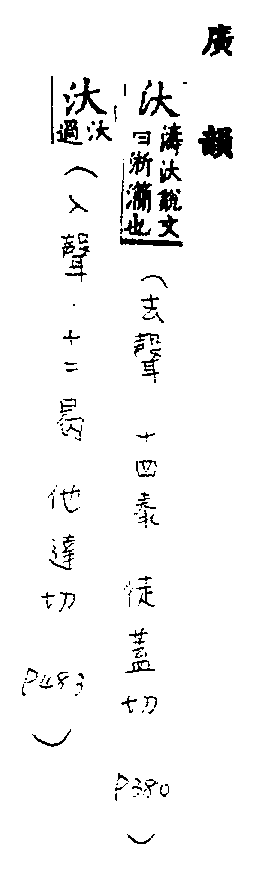 廣韻
汏 濤汏說文曰淅㶕也 (去聲 十四泰 徒蓋切 P380)
汏 汏過 (入聲.十二曷 他達切 P483)